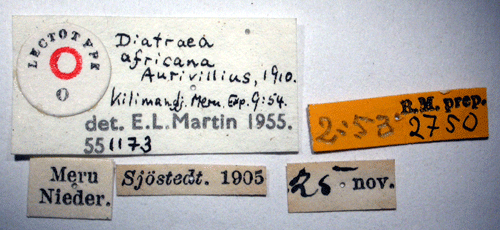 LECTOTYPE
Diatraea
africana
Aurivillius, 1910.
Kilimandj. Meru. Exp. 9:54.
det. E.L. Martin 1955.
551173
R.M. prep.
2750
Meru
Nieder.
Sjöstedt. 1905
25 nov.